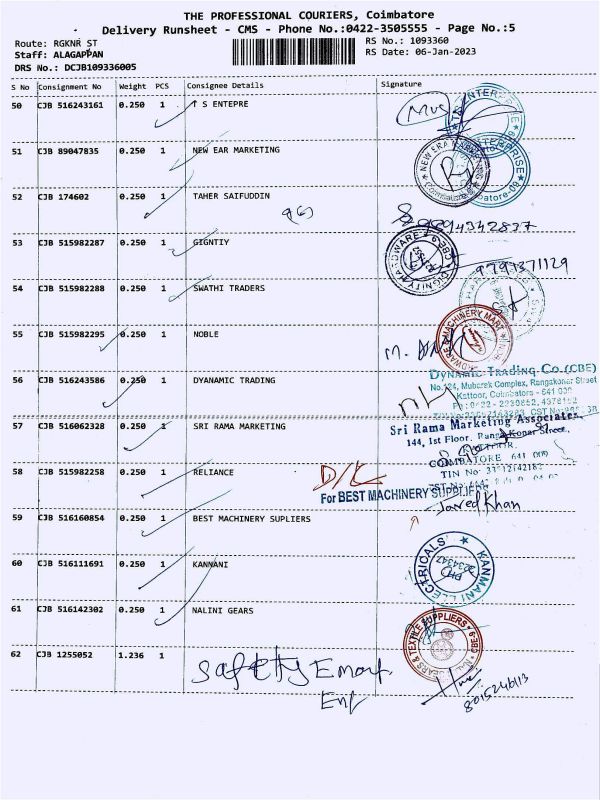 THE PROFESSIONAL COURIERS, Coimbatore
Delivery Runsheet - CMS - Phone No.:0422-3505555 - Page No.:5
Route: RGKNR ST
RS No.: 1093360
Staff: ALAGAPPAN
RS Date: 06-Jan-2023
DRS No.: DCJB109336005
S No Consignment No Weight PCS Consignee Details Signature
50 CJB 516243161 0.250 1 T S ENTEPRE
51 CJB 89047835 0.250 1 NEW EAR MARKETING
52 CJB 174602 0.250 1 TAHER SAIFUDDIN
53 CJB 515982287 0.250 1 GIGNTIY
9797371129
54 CJB 515982288 0.250 1 SWATHI TRADERS
55 CJB 515982295 0.250 1 NOBLE
56 CJB 516243586 0.250 1 DYANAMIC TRADING
DYNAMIC TRADING CO.(CBE)
No.124, Mubarak Complex, Rangakonar Street
Kattoor, Coimbatore - 641 009
57 CJB 516062328 0.250 1 SRI RAMA MARKETING
Sri Rama Marketing Associates,
144, 1st Floor, Ranga Konar Street,
COIMBATORE 641 009
58 CJB 515982258 0.250 1 RELIANCE
D/K
For BEST MACHINERY SUPPLIERS
Javeed Khan
59 CJB 516160854 0.250 1 BEST MACHINERY SUPLIERS
60 CJB 516111691 0.250 1 KANNANI
61 CJB 516142302 0.250 1 NALINI GEARS
62 CJB 1255052 1.236 1
Safety Emort
Ent
8015246113